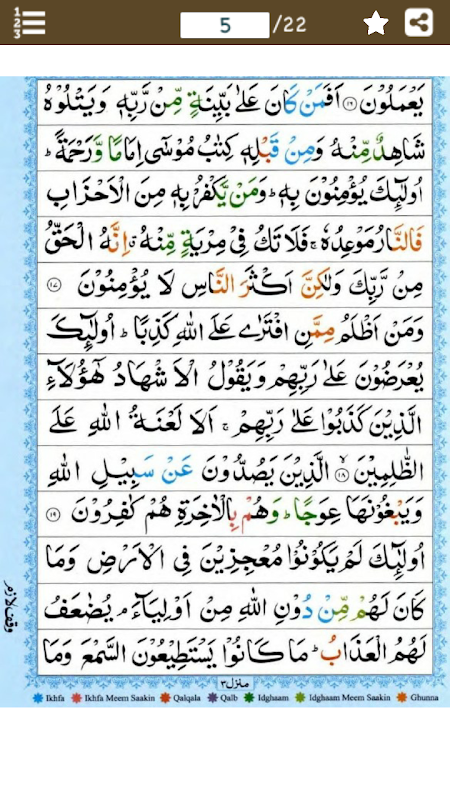 123
5 /22
یَعْمَلُوْنَ ﴿۱۶﴾ اَفَمَنْ کَانَ عَلٰی بَیِّنَةٍ مِّنْ رَّبِّهٖ وَیَتْلُوْهُ
شَاهِدٌ مِّنْهُ وَمِنْ قَبْلِهٖ کِتٰبُ مُوْسٰۤی اِمَامًا وَّرَحْمَةً ؕ
اُولٰٓئِکَ یُؤْمِنُوْنَ بِهٖ ؕ وَمَنْ یَّکْفُرْ بِهٖ مِنَ الْاَحْزَابِ
فَالنَّارُ مَوْعِدُهٗ ۚ فَلَا تَکُ فِیْ مِرْیَةٍ مِّنْهُ ۗ اِنَّهُ الْحَقُّ
مِنْ رَّبِّکَ وَلٰکِنَّ اَکْثَرَ النَّاسِ لَا یُؤْمِنُوْنَ ﴿۱۷﴾
وَمَنْ اَظْلَمُ مِمَّنِ افْتَرٰی عَلَی اللّٰهِ کَذِبًا ؕ اُولٰٓئِکَ
یُعْرَضُوْنَ عَلٰی رَبِّهِمْ وَیَقُوْلُ الْاَشْهَادُ هٰۤؤُلَآءِ
الَّذِیْنَ کَذَبُوْا عَلٰی رَبِّهِمْ ۚ اَلَا لَعْنَةُ اللّٰهِ عَلَی
الظّٰلِمِیْنَ ﴿۱۸﴾ ۙ الَّذِیْنَ یَصُدُّوْنَ عَنْ سَبِیْلِ اللّٰهِ
وَیَبْغُوْنَهَا عِوَجًا ؕ وَهُمْ بِالْاٰخِرَةِ هُمْ کٰفِرُوْنَ ﴿۱۹﴾
اُولٰٓئِکَ لَمْ یَکُوْنُوْا مُعْجِزِیْنَ فِی الْاَرْضِ وَمَا
کَانَ لَهُمْ مِّنْ دُوْنِ اللّٰهِ مِنْ اَوْلِیَآءَ ۘ یُضٰعَفُ
لَهُمُ الْعَذَابُ ؕ مَا کَانُوْا یَسْتَطِیْعُوْنَ السَّمْعَ وَمَا
وقف لازم
منزل ۳
Ikhfa Ikhfa Meem Saakin Qalqala Qalb Idghaam Idghaam Meem Saakin Ghunna